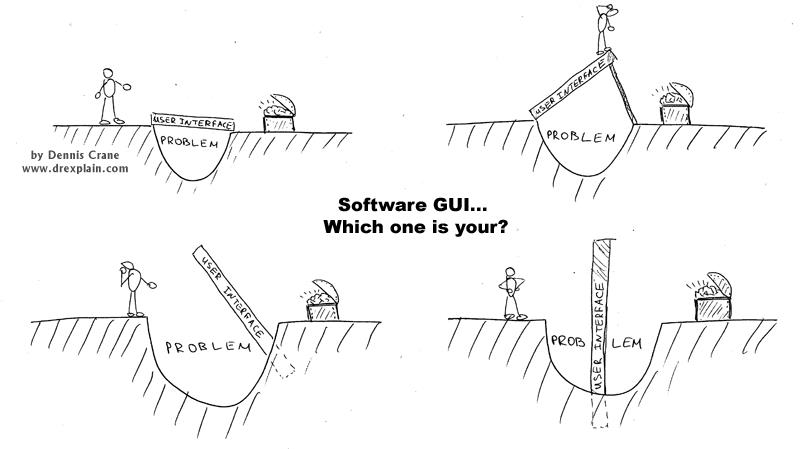 USER INTERFACE
PROBLEM
by Dennis Crane
www.drexplain.com
USER INTERFACE
PROBLEM
Software GUI...
Which one is your?
USER INTERFACE
PROBLEM
USER INTERFACE
PROB LEM